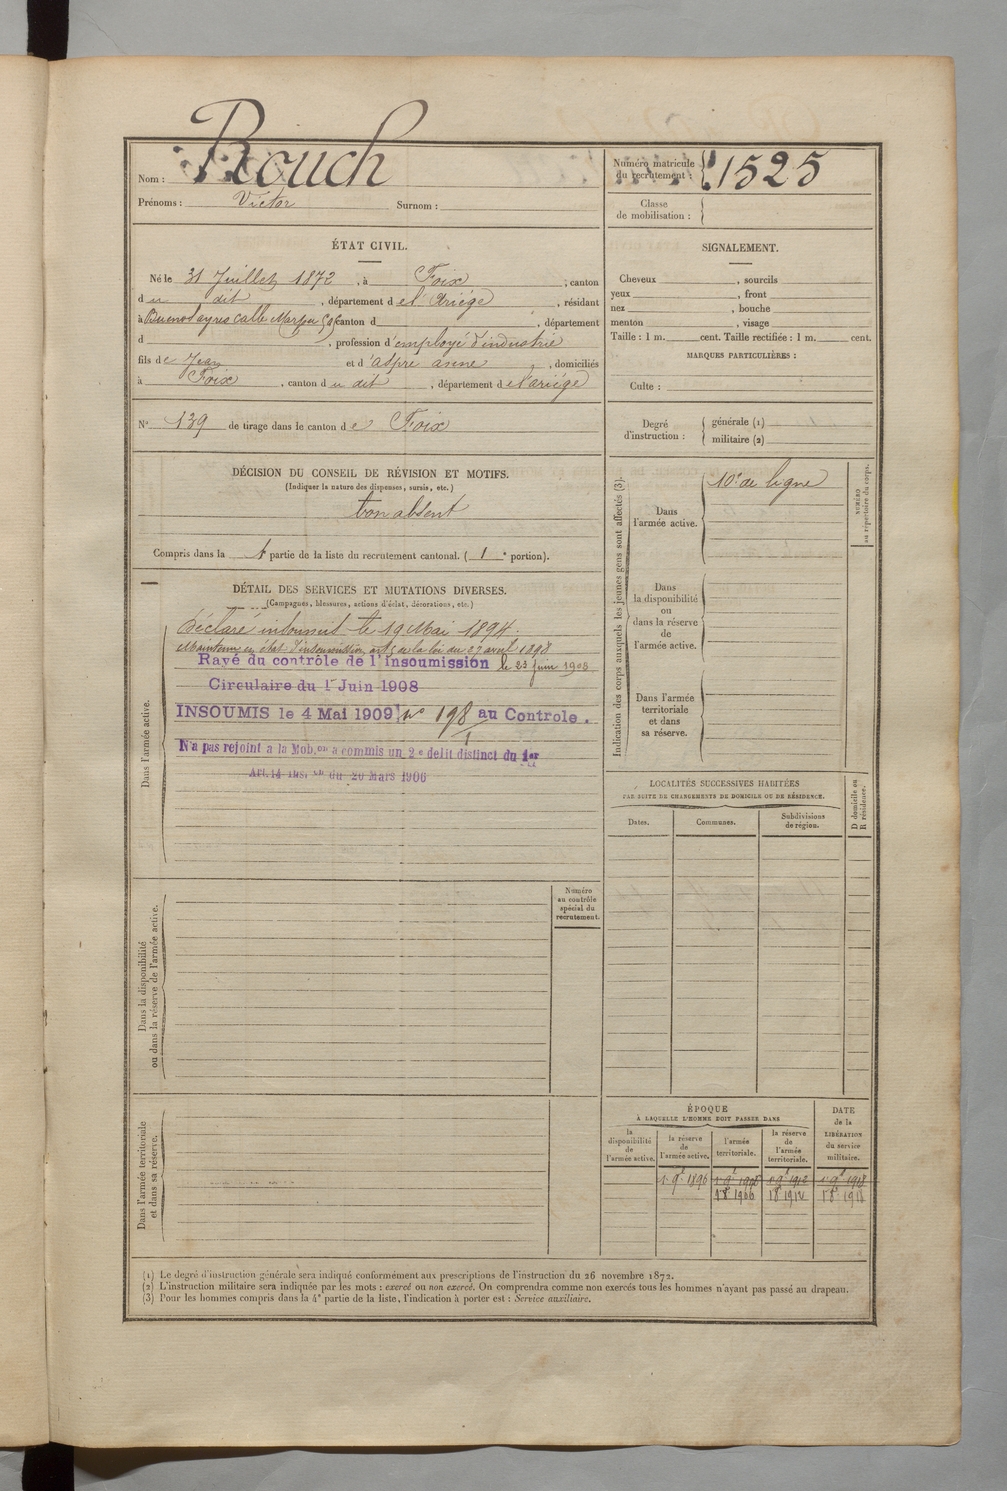 Nom : Rouch
Prénoms : Victor Surnom :
Numéro matricule du recrutement : 1525
Classe de mobilisation :
ÉTAT CIVIL.
Né le 31 Juillet 1872, à Foix, canton
du dit, département de l'Ariège, résidant
à Buenos ayres calle canton d , département
d , profession d'employé d'industrie
fils de Jean et d'aspre anne, domiciliés
à Foix, canton du dit, département de l'ariège
N° 139 de tirage dans le canton de Foix
SIGNALEMENT.
Cheveux , sourcils
yeux , front
nez , bouche
menton , visage
Taille : 1 m. cent. Taille rectifiée : 1 m. cent.
MARQUES PARTICULIÈRES :
Culte :
Degré d'instruction : générale (1)
militaire (2)
DÉCISION DU CONSEIL DE RÉVISION ET MOTIFS.
(Indiquer la nature des dispenses, sursis, etc.)
bon absent
Compris dans la 1 partie de la liste du recrutement cantonal. ( 1 e portion).
DÉTAIL DES SERVICES ET MUTATIONS DIVERSES.
(Campagnes, blessures, actions d'éclat, décorations, etc.)
Dans l'armée active.
Déclaré insoumis le 19 Mai 1894.
Maintenu en état d'insoumission art 5 de la loi du 27 avril 1898
Rayé du contrôle de l'Insoumission le 23 juin 1908
Circulaire du 1er Juin 1908
INSOUMIS le 4 Mai 1909 n° 198 au Controle.
N'a pas rejoint a la Mob.on a commis un 2e delit distinct du 1er
Art. 14 Ins.on du 20 Mars 1906
Dans la disponibilité
ou dans la réserve de l'armée active.
Numéro
au contrôle
spécial du
recrutement.
Dans l'armée territoriale
et dans sa réserve.
Indication des corps auxquels les jeunes gens sont affectés (3).
Dans l'armée active.
10e de ligne
NUMÉRO
au répertoire du corps.
Dans
la disponibilité
ou
dans la réserve
de
l'armée active.
Dans l'armée
territoriale
et dans
sa réserve.
LOCALITÉS SUCCESSIVES HABITÉES
PAR SUITE DE CHANGEMENTS DE DOMICILE OU DE RÉSIDENCE.
Dates. Communes. Subdivisions de région. D domicile ou R résidence.
ÉPOQUE
À LAQUELLE L'HOMME DOIT PASSER DANS
la disponibilité de l'armée active.
la réserve de l'armée active.
l'armée territoriale.
la réserve de l'armée territoriale.
DATE de la LIBÉRATION du service militaire.
1 9e 1896 1 9e 1912 1 9e 1918
1 8 1906 1 8 1912 1 8 1918
(1) Le degré d'instruction générale sera indiqué conformément aux prescriptions de l'instruction du 26 novembre 1872.
(2) L'instruction militaire sera indiquée par les mots : exercé ou non exercé. On comprendra comme non exercés tous les hommes n'ayant pas passé au drapeau.
(3) Pour les hommes compris dans la 4e partie de la liste, l'indication à porter est : Service auxiliaire.